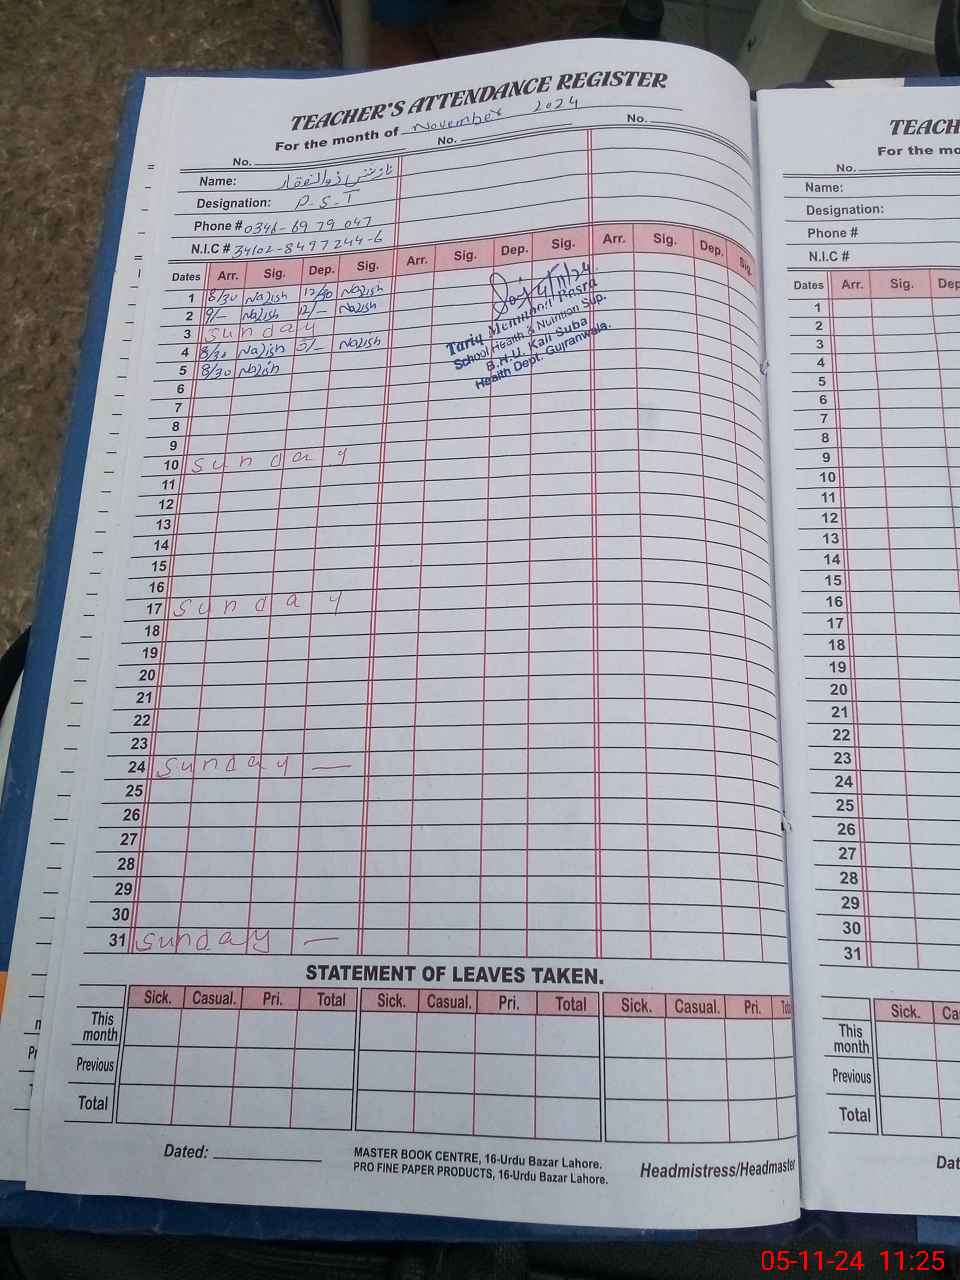 TEACHER'S ATTENDANCE REGISTER
For the month of November 2024
No. No. No.
Name: نازش ذوالفقار
Designation: P.S.T
Phone # 0346-6979047
N.I.C # 34102-8497244-6
Dates Arr. Sig. Dep. Sig. Arr. Sig. Dep. Sig. Arr. Sig. Dep. Sig.
1 8/30 Nazish 12/30 Nazish
2 9/- Nazish 12/- Nazish
3 Sunday
4 8/30 Nazish 3/- Nazish
5 8/30 Nazish
6
7
8
9
10 Sunday
11
12
13
14
15
16
17 Sunday
18
19
20
21
22
23
24 Sunday —
25
26
27
28
29
30
31 Sunday —
Tariq Basra
School Health & Nutrition Sup.
B.H.U. Kali Suba
Health Dept. Gujranwala.
STATEMENT OF LEAVES TAKEN.
Sick. Casual. Pri. Total Sick. Casual. Pri. Total Sick. Casual. Pri.
This month
Previous
Total
Dated:
MASTER BOOK CENTRE, 16-Urdu Bazar Lahore.
PRO FINE PAPER PRODUCTS, 16-Urdu Bazar Lahore.
Headmistress/Headmaster
TEACH
For the mo
No.
Name:
Designation:
Phone #
N.I.C #
Dates Arr. Sig. Dep
1
2
3
4
5
6
7
8
9
10
11
12
13
14
15
16
17
18
19
20
21
22
23
24
25
26
27
28
29
30
31
Sick. Ca
This month
Previous
Total
Dat
05-11-24 11:25